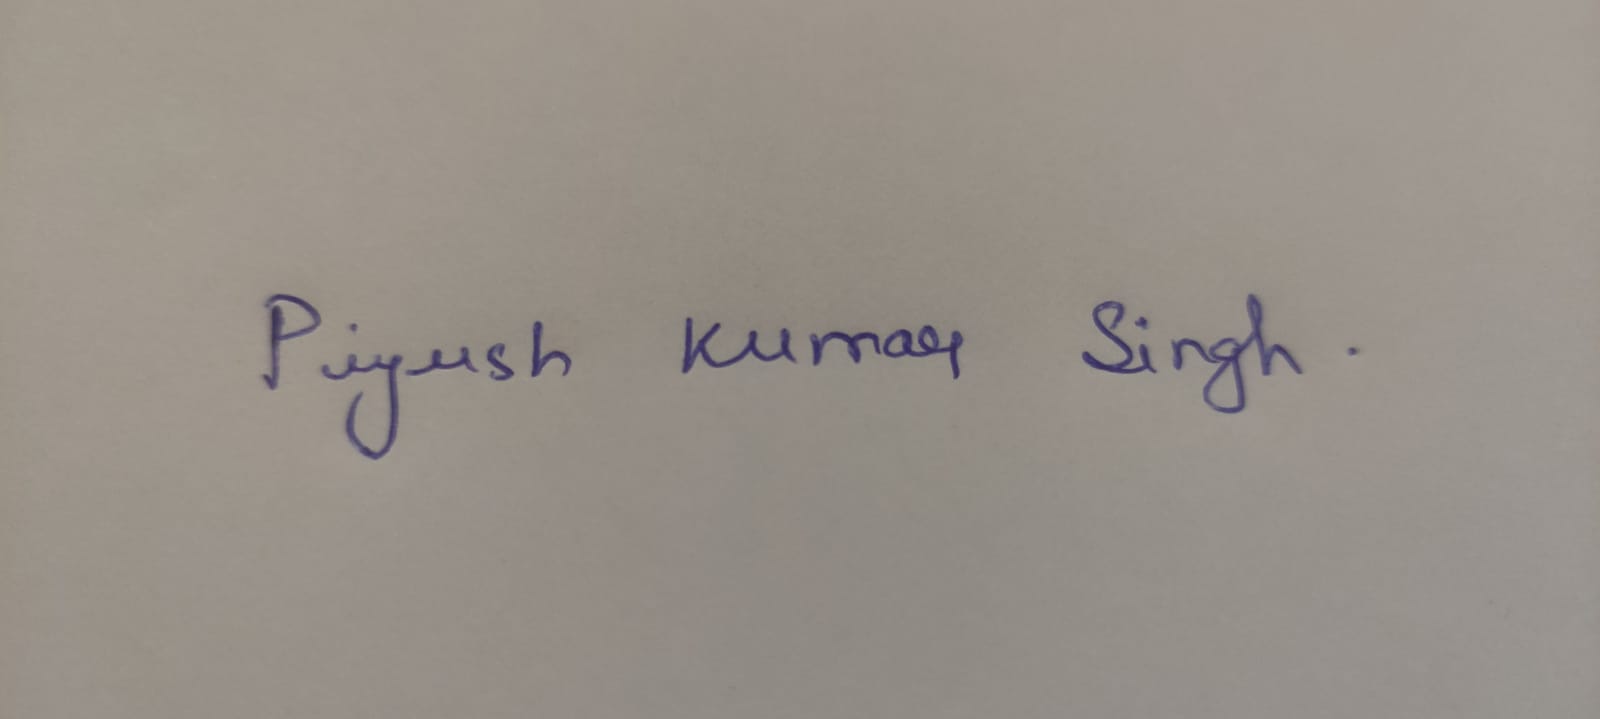 Piyush Kumar Singh.